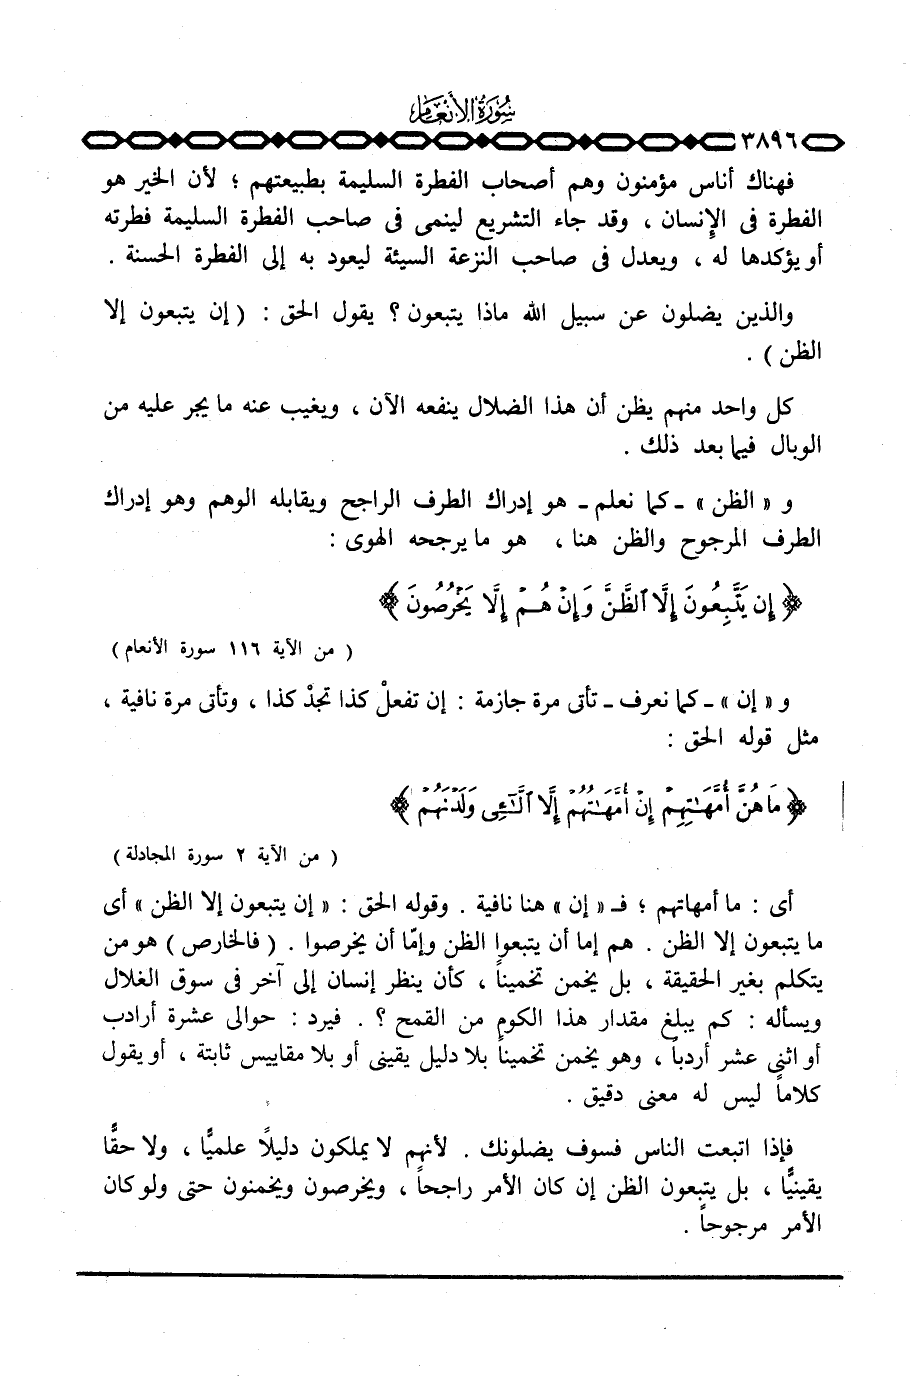 سورة الأنعام
٣٨٩٦
فهناك أناس مؤمنون وهم أصحاب الفطرة السليمة بطبيعتهم ؛ لأن الخير هو
الفطرة فى الإنسان ، وقد جاء التشريع لينمى فى صاحب الفطرة السليمة فطرته
أو يؤكدها له ، ويعدل فى صاحب النزعة السيئة ليعود به إلى الفطرة الحسنة .
والذين يضلون عن سبيل الله ماذا يتبعون ؟ يقول الحق : ( إن يتبعون إلا
الظن ) .
كل واحد منهم يظن أن هذا الضلال ينفعه الآن ، ويغيب عنه ما يجر عليه من
الوبال فيما بعد ذلك .
و « الظن » ـ كما نعلم ـ هو إدراك الطرف الراجح ويقابله الوهم وهو إدراك
الطرف المرجوح والظن هنا ، هو ما يرجحه الهوى :
﴿ إِن يَتَّبِعُونَ إِلَّا ٱلظَّنَّ وَإِنْ هُمْ إِلَّا يَخْرُصُونَ ﴾
( من الآية ١١٦ سورة الأنعام )
و « إن » ـ كما نعرف ـ تأتى مرة جازمة : إن تفعلْ كذا تجدْ كذا ، وتأتى مرة نافية ،
مثل قوله الحق :
﴿ مَا هُنَّ أُمَّهَٰتِهِمْ إِنْ أُمَّهَٰتُهُمْ إِلَّا ٱلَّٰٓـِٔى وَلَدْنَهُمْ ﴾
( من الآية ٢ سورة المجادلة )
أى : ما أمهاتهم ؛ فـ « إن » هنا نافية . وقوله الحق : « إن يتبعون إلا الظن » أى
ما يتبعون إلا الظن . هم إما أن يتبعوا الظن وإمّا أن يخرصوا . ( فالخارص ) هو من
يتكلم بغير الحقيقة ، بل يخمن تخميناً ، كأن ينظر إنسان إلى آخر فى سوق الغلال
ويسأله : كم يبلغ مقدار هذا الكوم من القمح ؟ . فيرد : حوالى عشرة أرادب
أو اثنى عشر أردباً ، وهو يخمن تخميناً بلا دليل يقينى أو بلا مقاييس ثابتة ، أو يقول
كلاماً ليس له معنى دقيق .
فإذا اتبعت الناس فسوف يضلونك . لأنهم لا يملكون دليلاً علميًّا ، ولا حقًّا
يقينيًّا ، بل يتبعون الظن إن كان الأمر راجحاً ، ويخرصون ويخمنون حتى ولو كان
الأمر مرجوحاً .